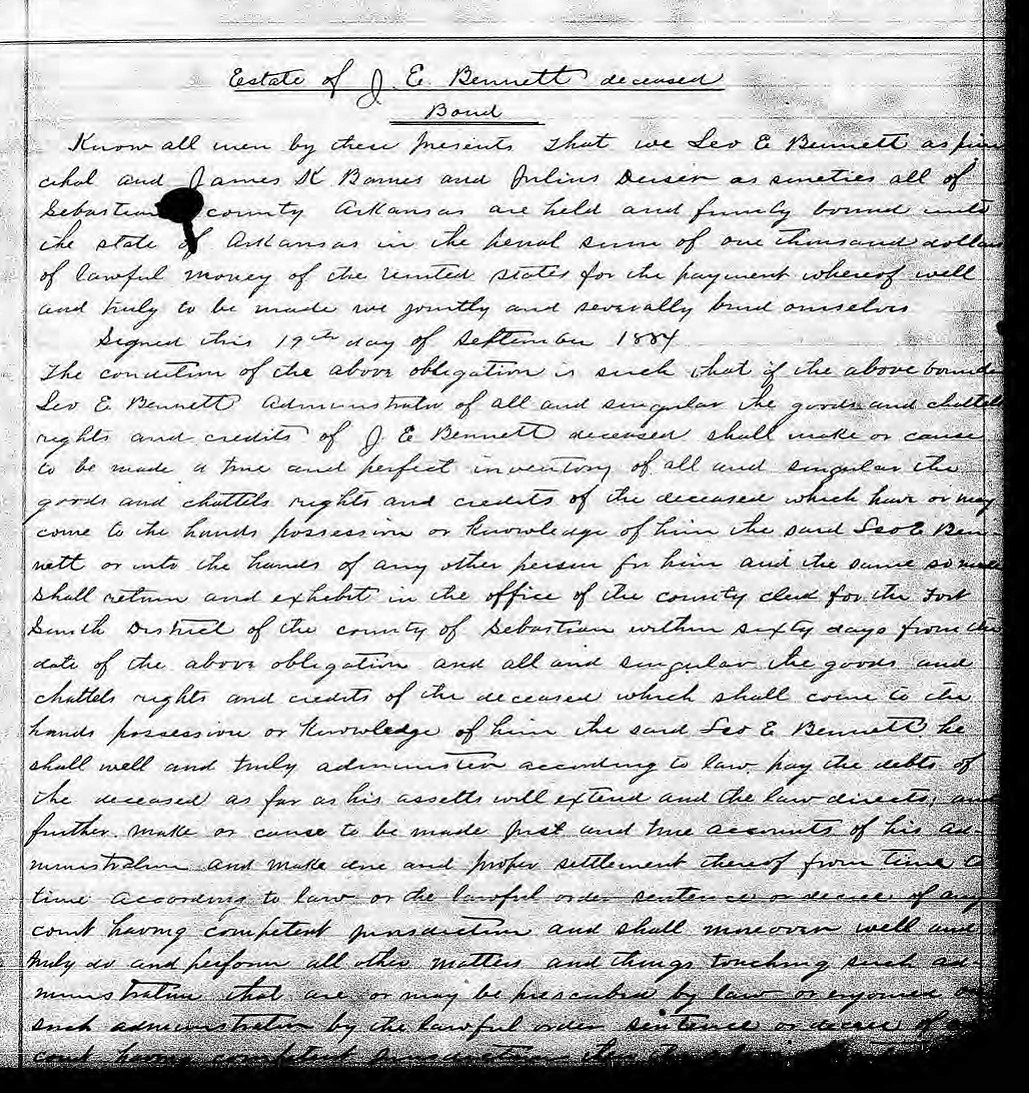 Estate of J. E. Bennett deceased
Bond
Know all men by these presents That we Leo E Bennett as prin
cipal and James K Barnes and Julius as sureties all of
Sebastian county Arkansas are held and firmly bound unto
the state of Arkansas in the penal sum of one thousand dollars
of lawful money of the united states for the payment whereof well
and truly to be made we jointly and severally bind ourselves
Signed this 19th day of September 1884
The condition of the above obligation is such that if the above bound
Leo E Bennett Administrator of all and singular the goods and chattels
rights and credits of J E Bennett deceased shall make or cause
to be made a true and perfect inventory of all and singular the
goods and chattels rights and credits of the deceased which have or may
come to the hands possession or knowledge of him the said Leo E Ben-
nett or into the hands of any other person for him and the same so made
shall return and exhibit in the office of the county clerk for the Fort
Smith District of the county of Sebastian within sixty days from the
date of the above obligation and all and singular the goods and
chattels rights and credits of the deceased which shall come to the
hands possession or knowledge of him the said Leo E Bennett he
shall well and truly administer according to law, pay the debts of
the deceased as far as his assetts will extend and the law directs, and
further make or cause to be made just and true accounts of his ad-
ministration and make due and proper settlement thereof from time to
time according to law or the lawful order sentence or decree of any
court having competent jurisdiction and shall moreover well and
truly do and perform all other matters and things touching such ad-
ministration that are or may be prescribed by law or enjoined on
such administrator by the lawful order sentence or decree of any
court having competent jurisdiction then the